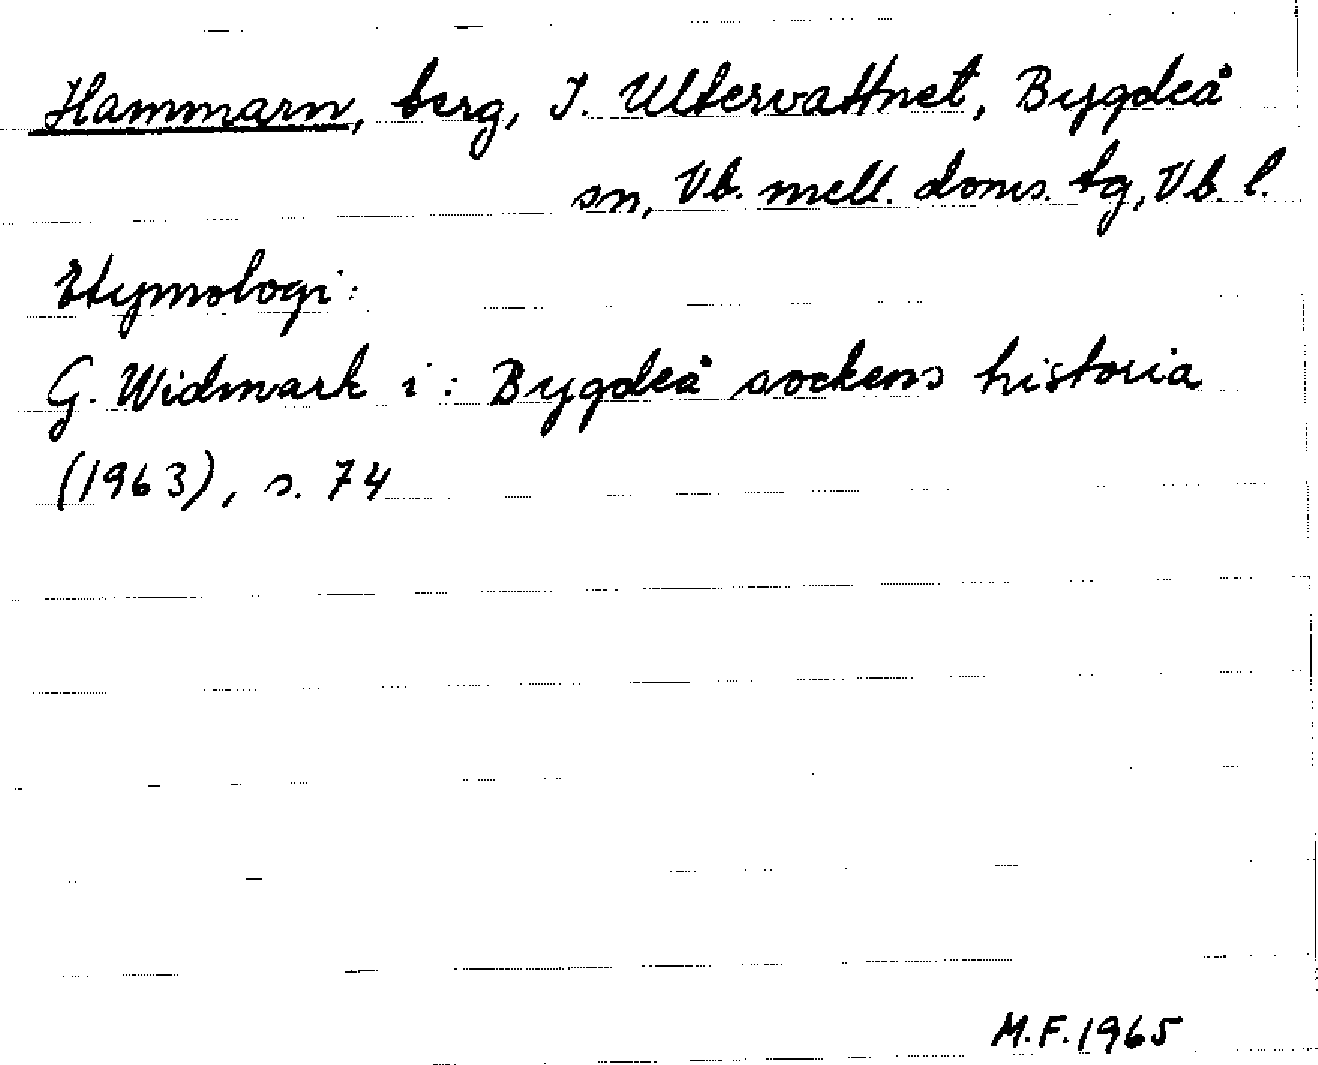 Hammarn, berg, I. Ultervattnet, Bygdeå
sn, Vb. mell. doms. tg, Vb. l.
Etymologi:
G. Widmark i: Bygdeå sockens historia
(1963), s. 74
M.F. 1965